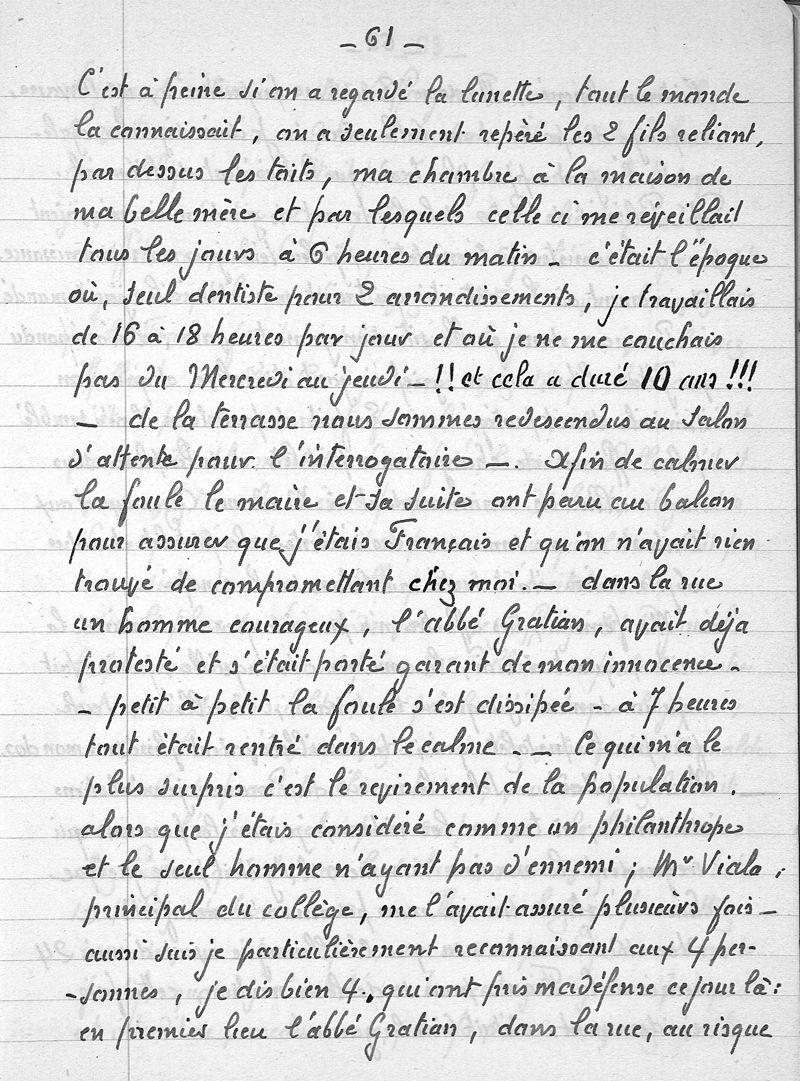 _ 61 _
C'est à peine si on a regardé la lunette, tout le monde
la connaissait, on a seulement repèré les 2 fils reliant,
par dessus les toits, ma chambre à la maison de
ma belle mère et par lesquels celle ci me réveillait
tous les jours à 6 heures du matin _ c'était l'époque
où, seul dentiste pour 2 arrondissements, je travaillais
de 16 à 18 heures par jour et où je ne me couchais
pas du Mercredi au jeudi _ !! et cela a duré 10 ans !!!
_ de la terrasse nous sommes redescendus au salon
d'attente pour l'interrogatoire _. Afin de calmer
la foule le maire et sa suite ont paru au balcon
pour assurer que j'étais Français et qu'on n'avait rien
trouvé de compromettant chez moi. _ dans la rue
un homme courageux, l'abbé Gratian, avait déja
protesté et s'était porté garant de mon innocence -
- petit à petit la foule s'est dissipée - à 7 heures
tout était rentré dans le calme. _ _ Ce qui m'a le
plus surpris c'est le revirement de la population.
alors que j'étais considéré comme un philanthrope
et le seul homme n'ayant pas d'ennemi; Mr Viala,
principal du collège, me l'avait assuré plusieurs fois _
aussi suis je particulièrement reconnaissant aux 4 per-
-sonnes, je dis bien 4, qui ont pris ma défense ce jour là:
en premier lieu l'abbé Gratian, dans la rue, au risque